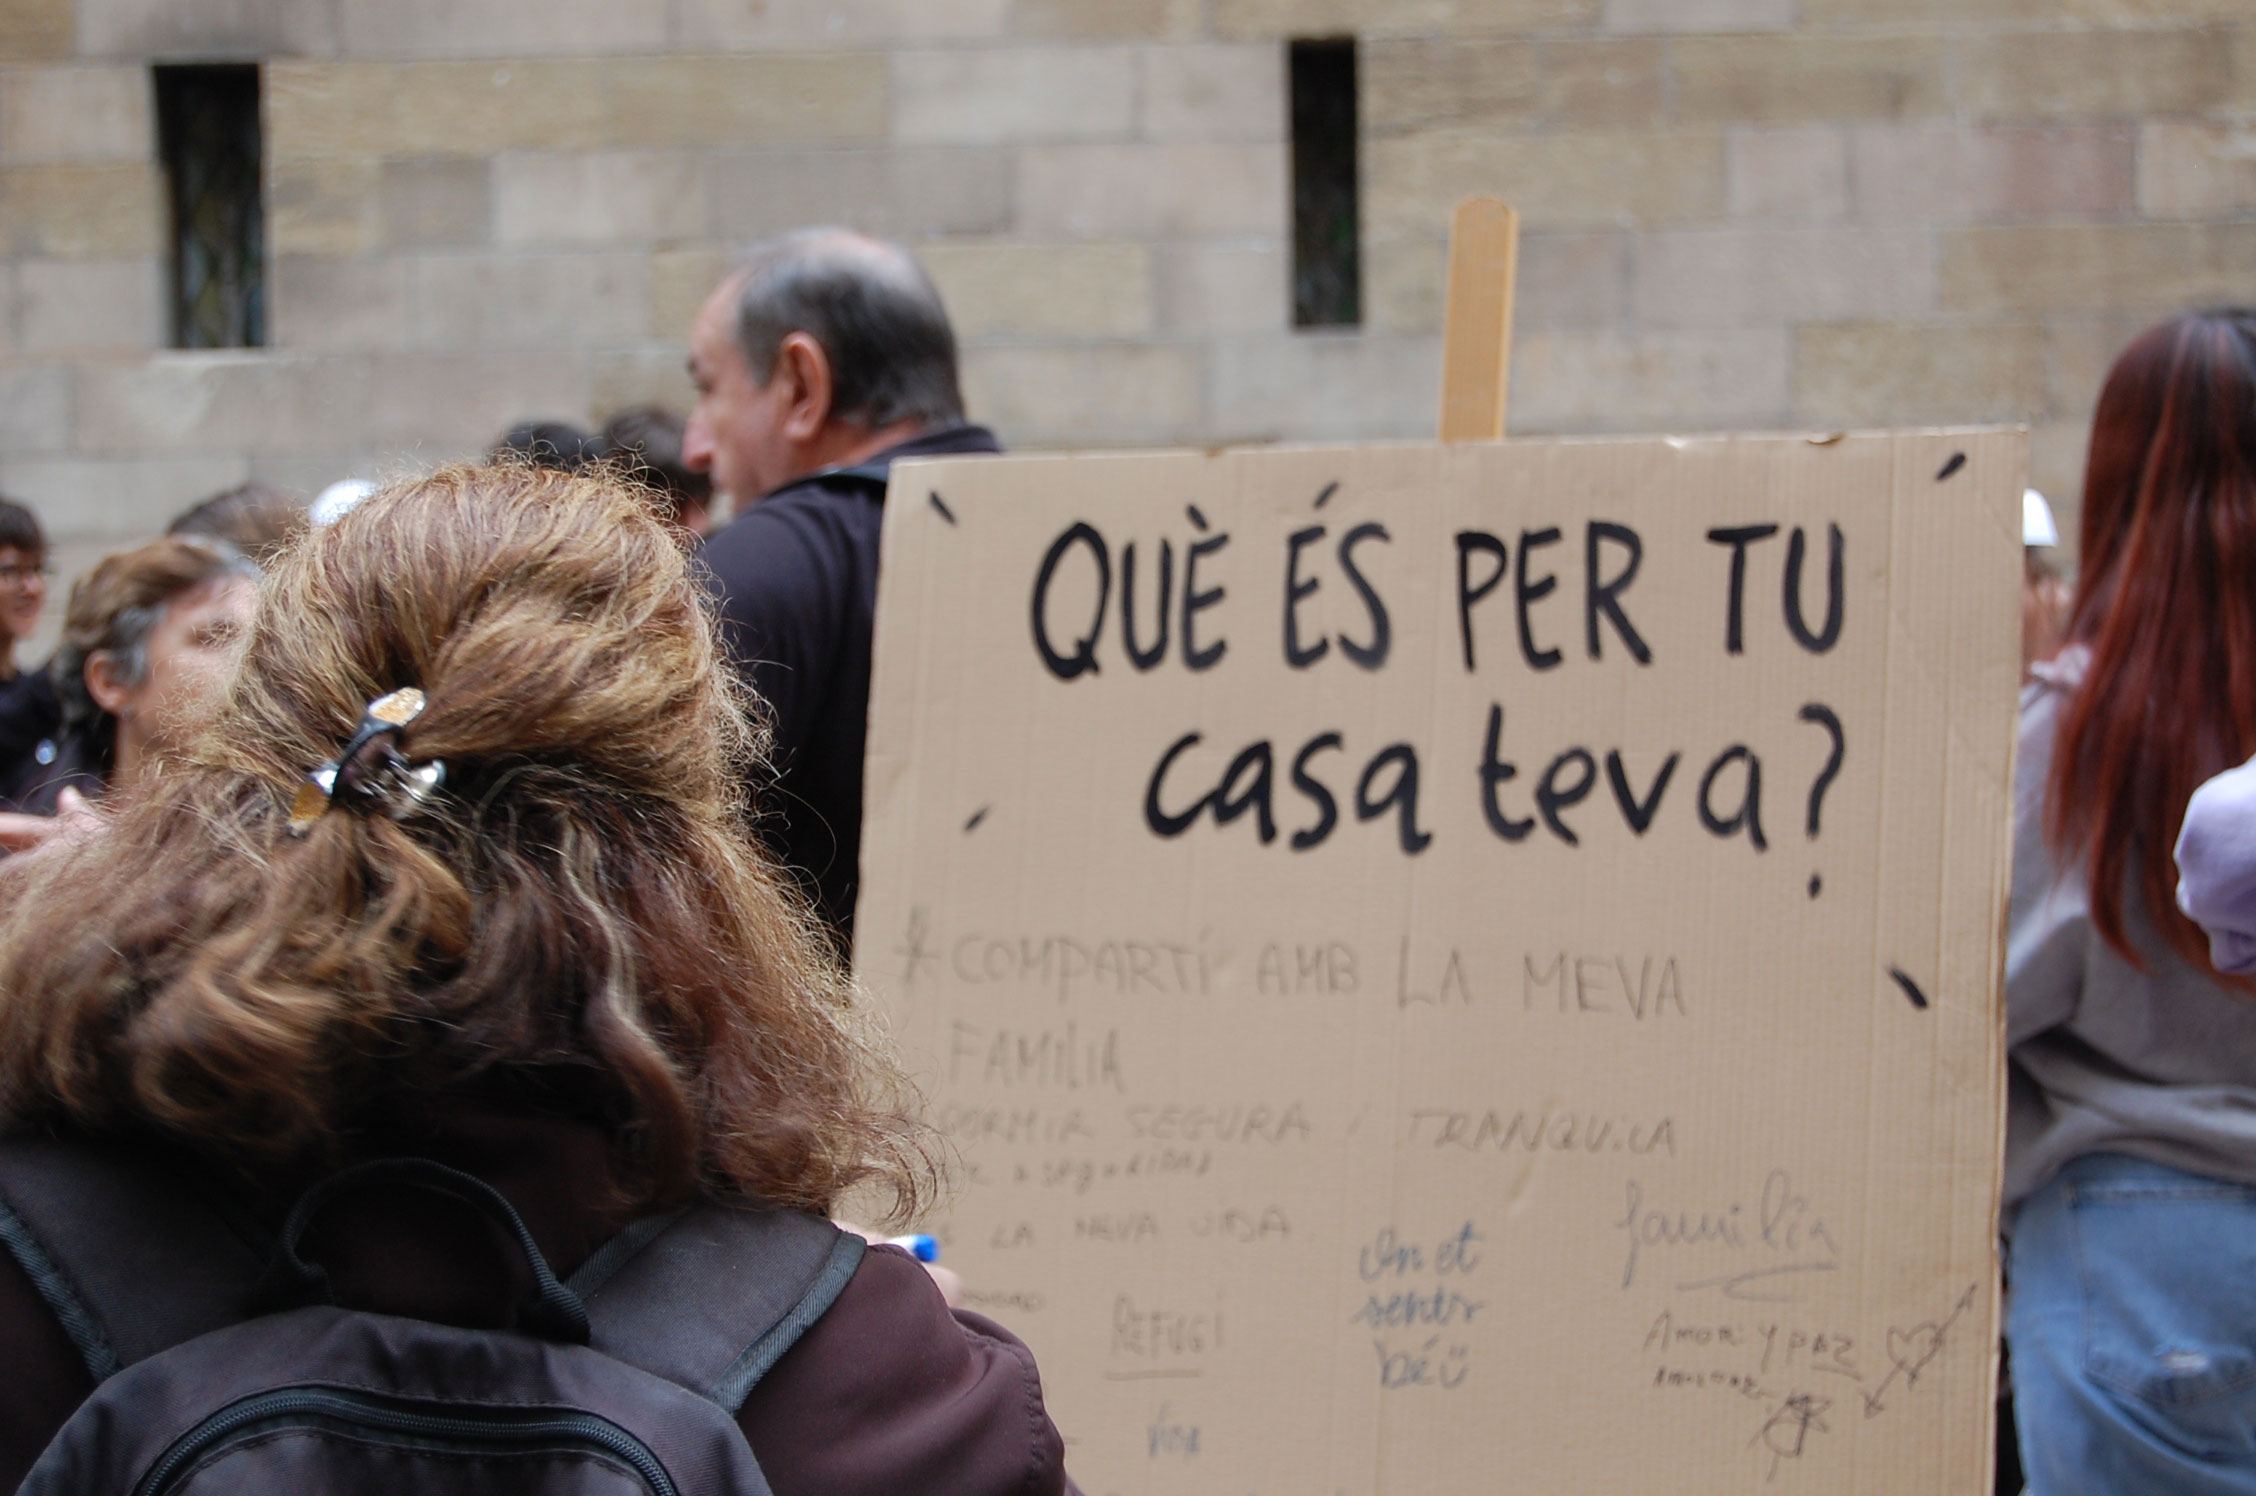 QUÈ ÉS PER TU
casa teva?
* COMPARTÍ AMB LA MEVA
FAMÍLIA
DORMIR SEGURA I TRANQUILA
LA MEVA VIDA
família
On et
sents
bé
REFUGI
AMOR Y PAZ
VIDA